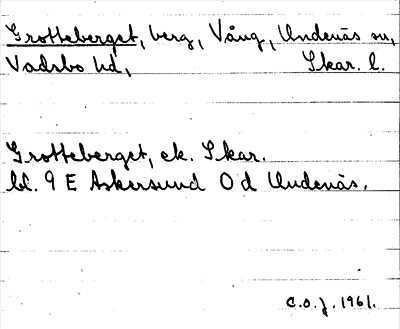 Grotteberget, berg, Vång, Undenäs sn,
Vadsbo hd, Skar. l.
Grotteberget, ek. Skar.
bl. 9 E Askersund O d Undenäs.
C.O.J. 1961.